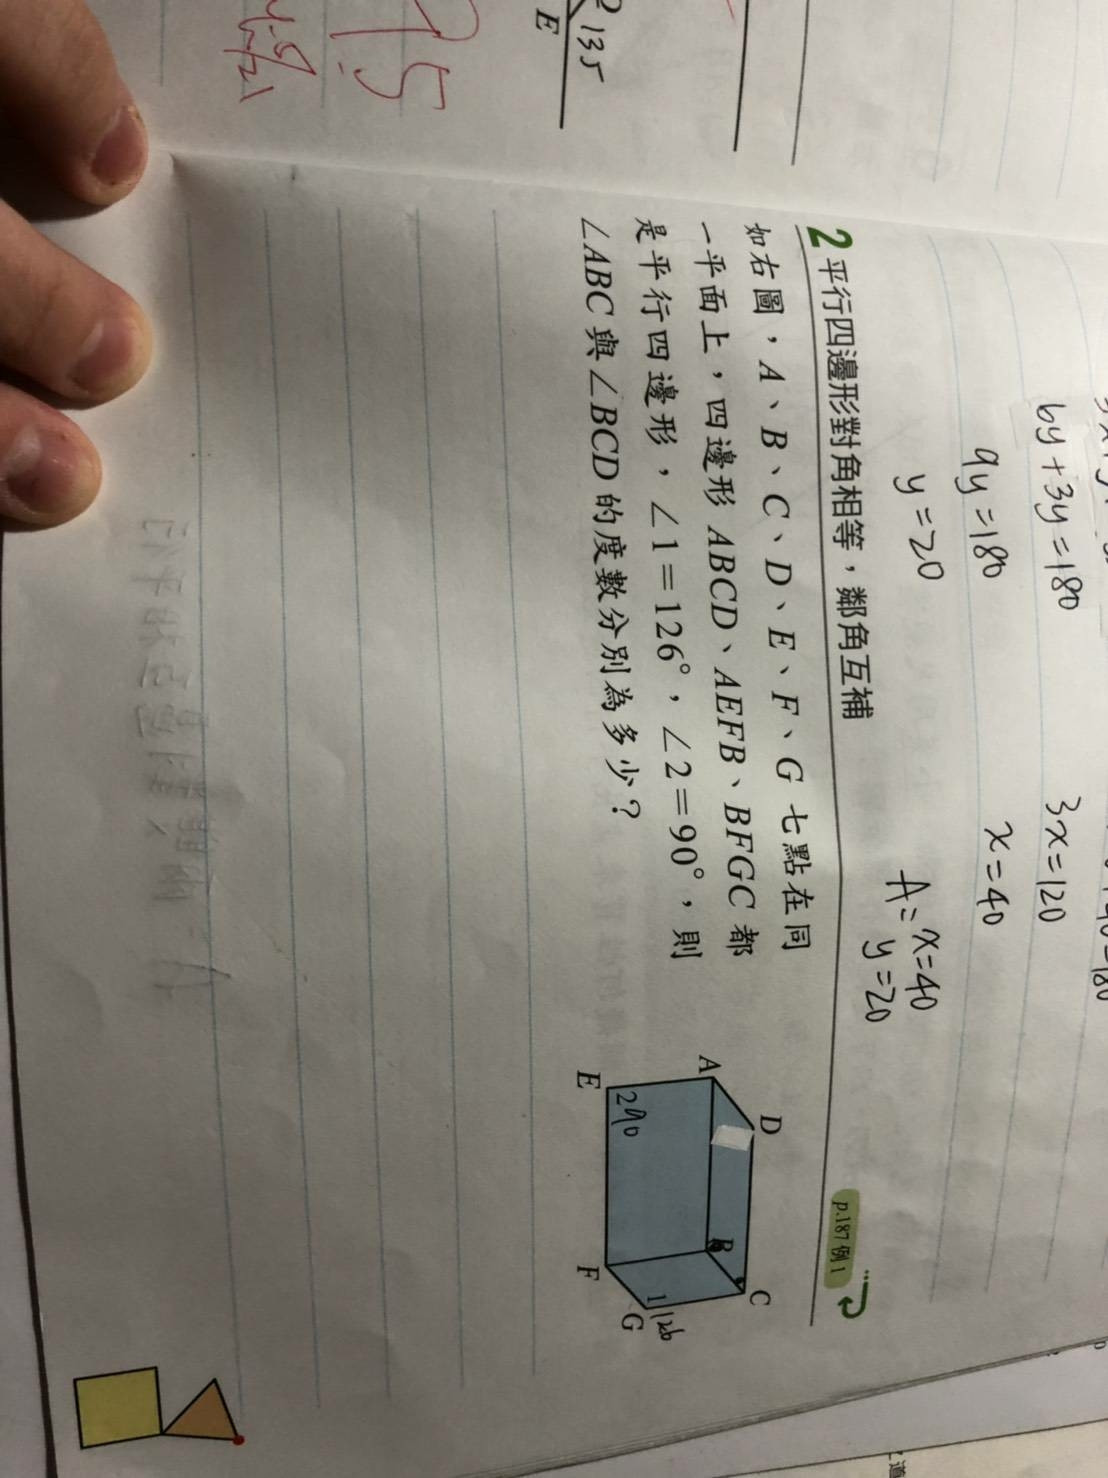 6y+3y=180
3x=120
9y=180
x=40
y=20
A=x=40
y=20
2 平行四邊形對角相等，鄰角互補
p.187 例1
如右圖，A、B、C、D、E、F、G 七點在同
一平面上，四邊形 ABCD、AEFB、BFGC 都
是平行四邊形，∠1=126°，∠2=90°，則
∠ABC 與 ∠BCD 的度數分別為多少？
D
C
A
B
1
126
G
2 90
E
F
135
E